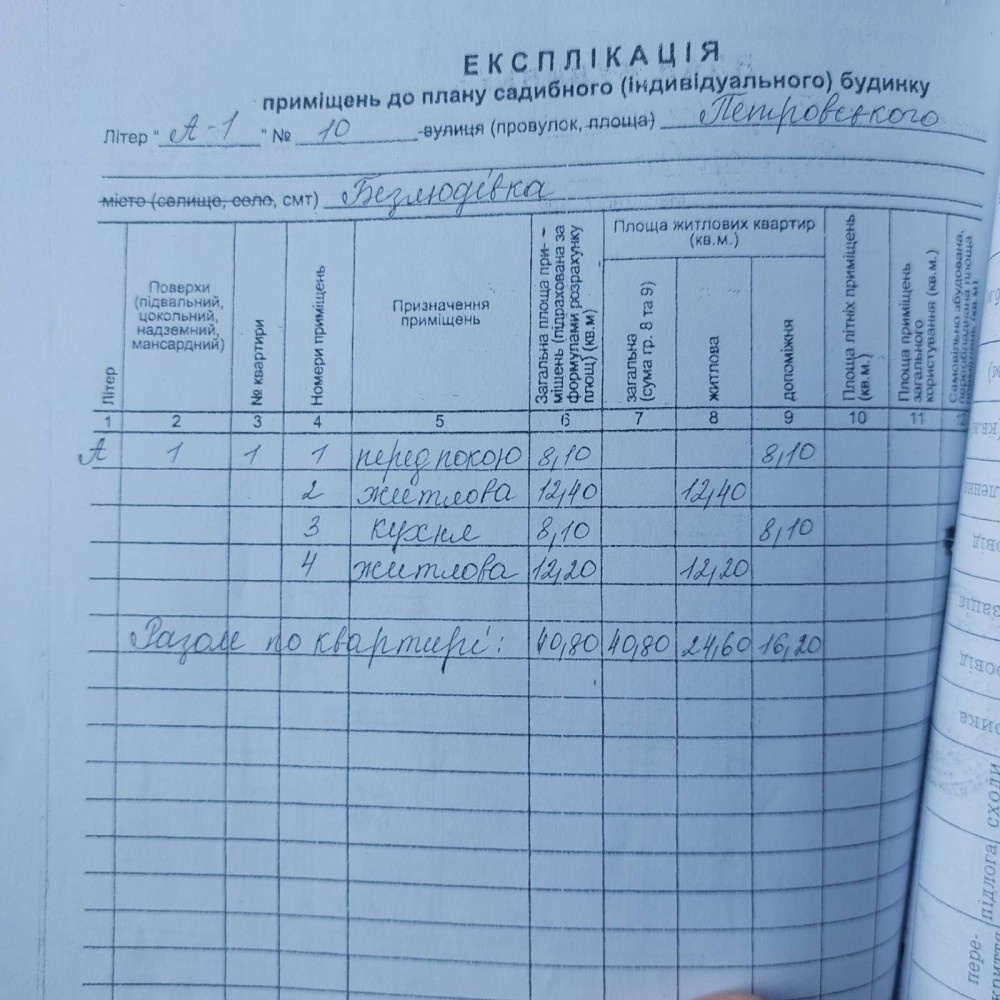 ЕКСПЛІКАЦІЯ
приміщень до плану садибного (індивідуального) будинку
Літер " А-1 " № 10 вулиця (провулок, площа) Петровського
місто (селище, село, смт) Безлюдівка
Літер
Поверхи (підвальний, цокольний, надземний, мансардний)
№ квартири
Номери приміщень
Призначення приміщень
Загальна площа приміщень (підрахована за формулами розрахунку площ) (кв.м)
Площа житлових квартир (кв.м.)
загальна (сума гр. 8 та 9)
житлова
допоміжня
Площа літніх приміщень (кв.м.)
Площа приміщень загального користування (кв.м.)
Самовільно збудована,
1 2 3 4 5 6 7 8 9 10 11 12
А 1 1 1 передпокою 8,10 8,10
2 житлова 12,40 12,40
3 кухня 8,10 8,10
4 житлова 12,20 12,20
Разом по квартирі: 40,80 40,80 24,60 16,20
підлога, сходи
пере-